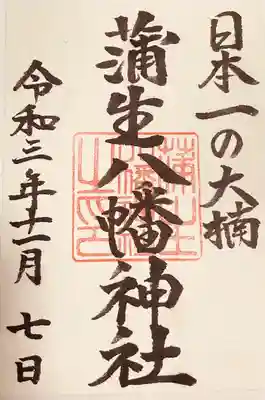 日本一の大楠
蒲生八幡神社
令和三年十一月 七日
蒲生
八幡神社
之印